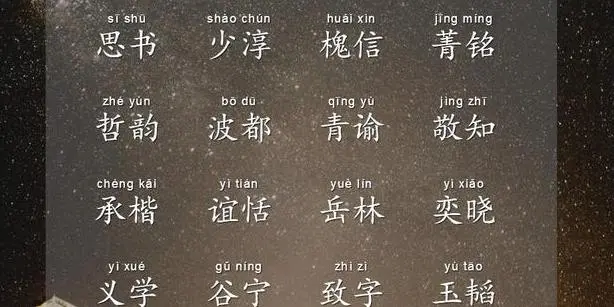 sī shū shào chún huái xìn jīng míng
思书 少淳 槐信 菁铭
zhé yùn bō dū qīng yù jìng zhī
哲韵 波都 青谕 敬知
chéng kǎi yì tián yuè lín yì xiǎo
承楷 谊恬 岳林 奕晓
yì xué gǔ níng zhì zì yù tāo
义学 谷宁 致字 玉韬